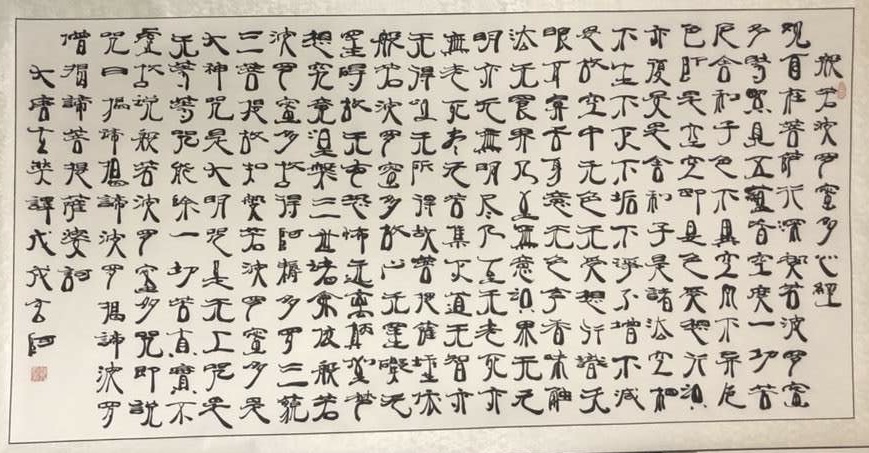 般若波罗蜜多心經
观自在菩萨行深般若波罗蜜
多時照見五蘊皆空度一切苦
厄舍利子色不異空空不异色
色即是空空即是色受想行識
亦復如是舍利子是諸法空相
不生不灭不垢不淨不增不减
是故空中无色无受想行識无
眼耳鼻舌身意无色声香味触
法无眼界乃至無意識界无无
明亦无無明尽乃至无老死亦
無老死尽无苦集灭道无智亦
无得以无所得故菩提薩埵依
般若波罗蜜多故心无罣礙无
罣碍故无有恐怖远离顛倒梦
想究竟涅槃三世諸佛依般若
波罗蜜多故得阿耨多罗三藐
三菩提故知般若波罗蜜多是
大神咒是大明咒是无上咒是
无等等咒能除一切苦真實不
虚故说般若波罗蜜多咒即說
咒曰揭諦揭諦波罗揭諦波罗
僧揭諦菩提薩婆訶
大唐玄奘譯戊戌